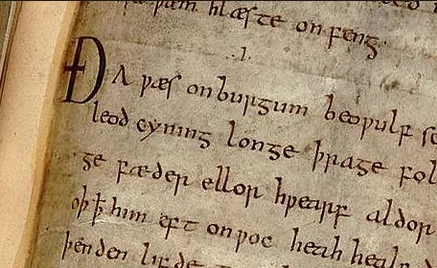 þam hlæste onfeng
.I.
ÐA ƿæs onburgum beoƿulf sc
leod cyning longe þrage fol
ge fæder ellor hƿearf aldor
oþꝥ him eft onƿoc heah healf
þenden lifde